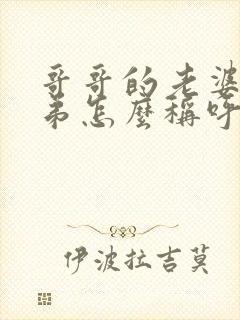 哥哥的老婆
弟怎麼稱呼
伊波拉吉莫